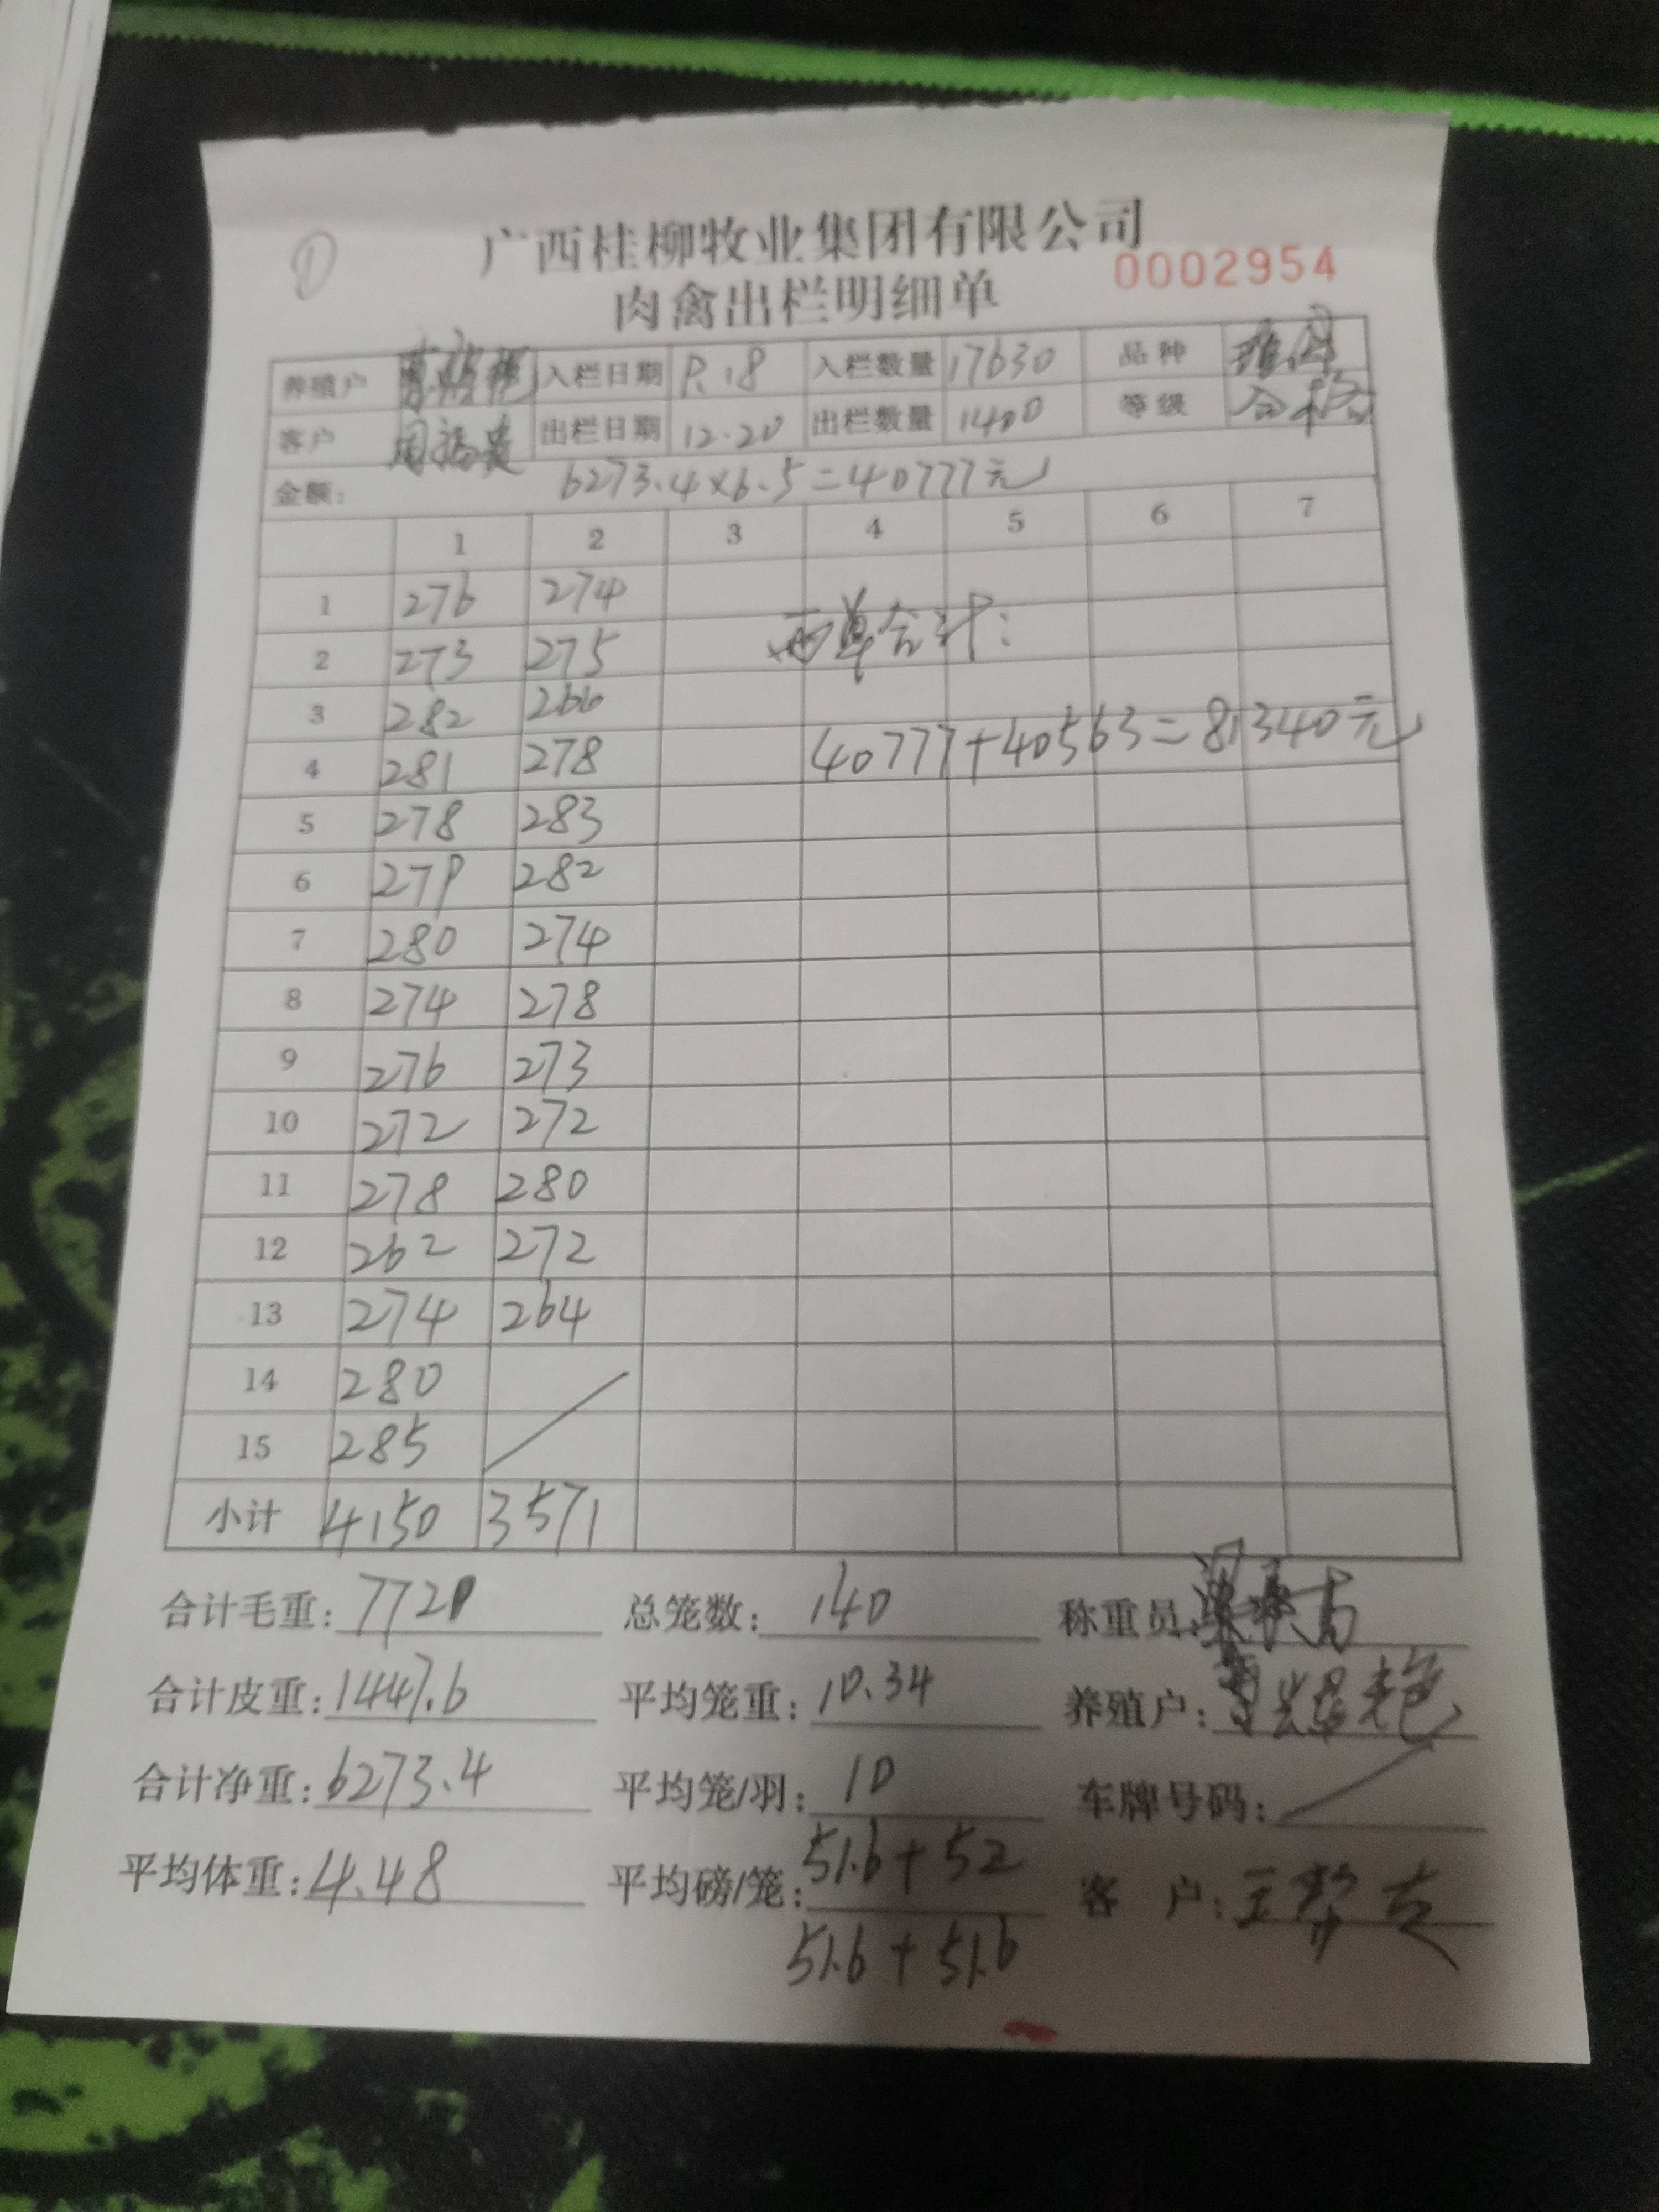 ①
广西桂柳牧业集团有限公司
肉禽出栏明细单 0002954
养殖户 入栏日期 9.18 入栏数量 17630 品种
客户 周福贵 出栏日期 12.20 出栏数量 1400 等级 合格
金额: 6273.4×6.5=40777元
1 2 3 4 5 6 7
1 276 274
2 273 275 两单合计:
3 282 266
4 281 278 40777+40563=81340元
5 278 283
6 279 282
7 280 274
8 274 278
9 276 273
10 272 272
11 278 280
12 262 272
13 274 264
14 280
15 285
小计 4150 3571
合计毛重: 7721 总笼数: 140 称重员:
合计皮重: 1447.6 平均笼重: 10.34 养殖户:
合计净重: 6273.4 平均笼/羽: 10 车牌号码:
平均体重: 4.48 平均磅/笼: 51.6+52 客 户:
51.6+51.6